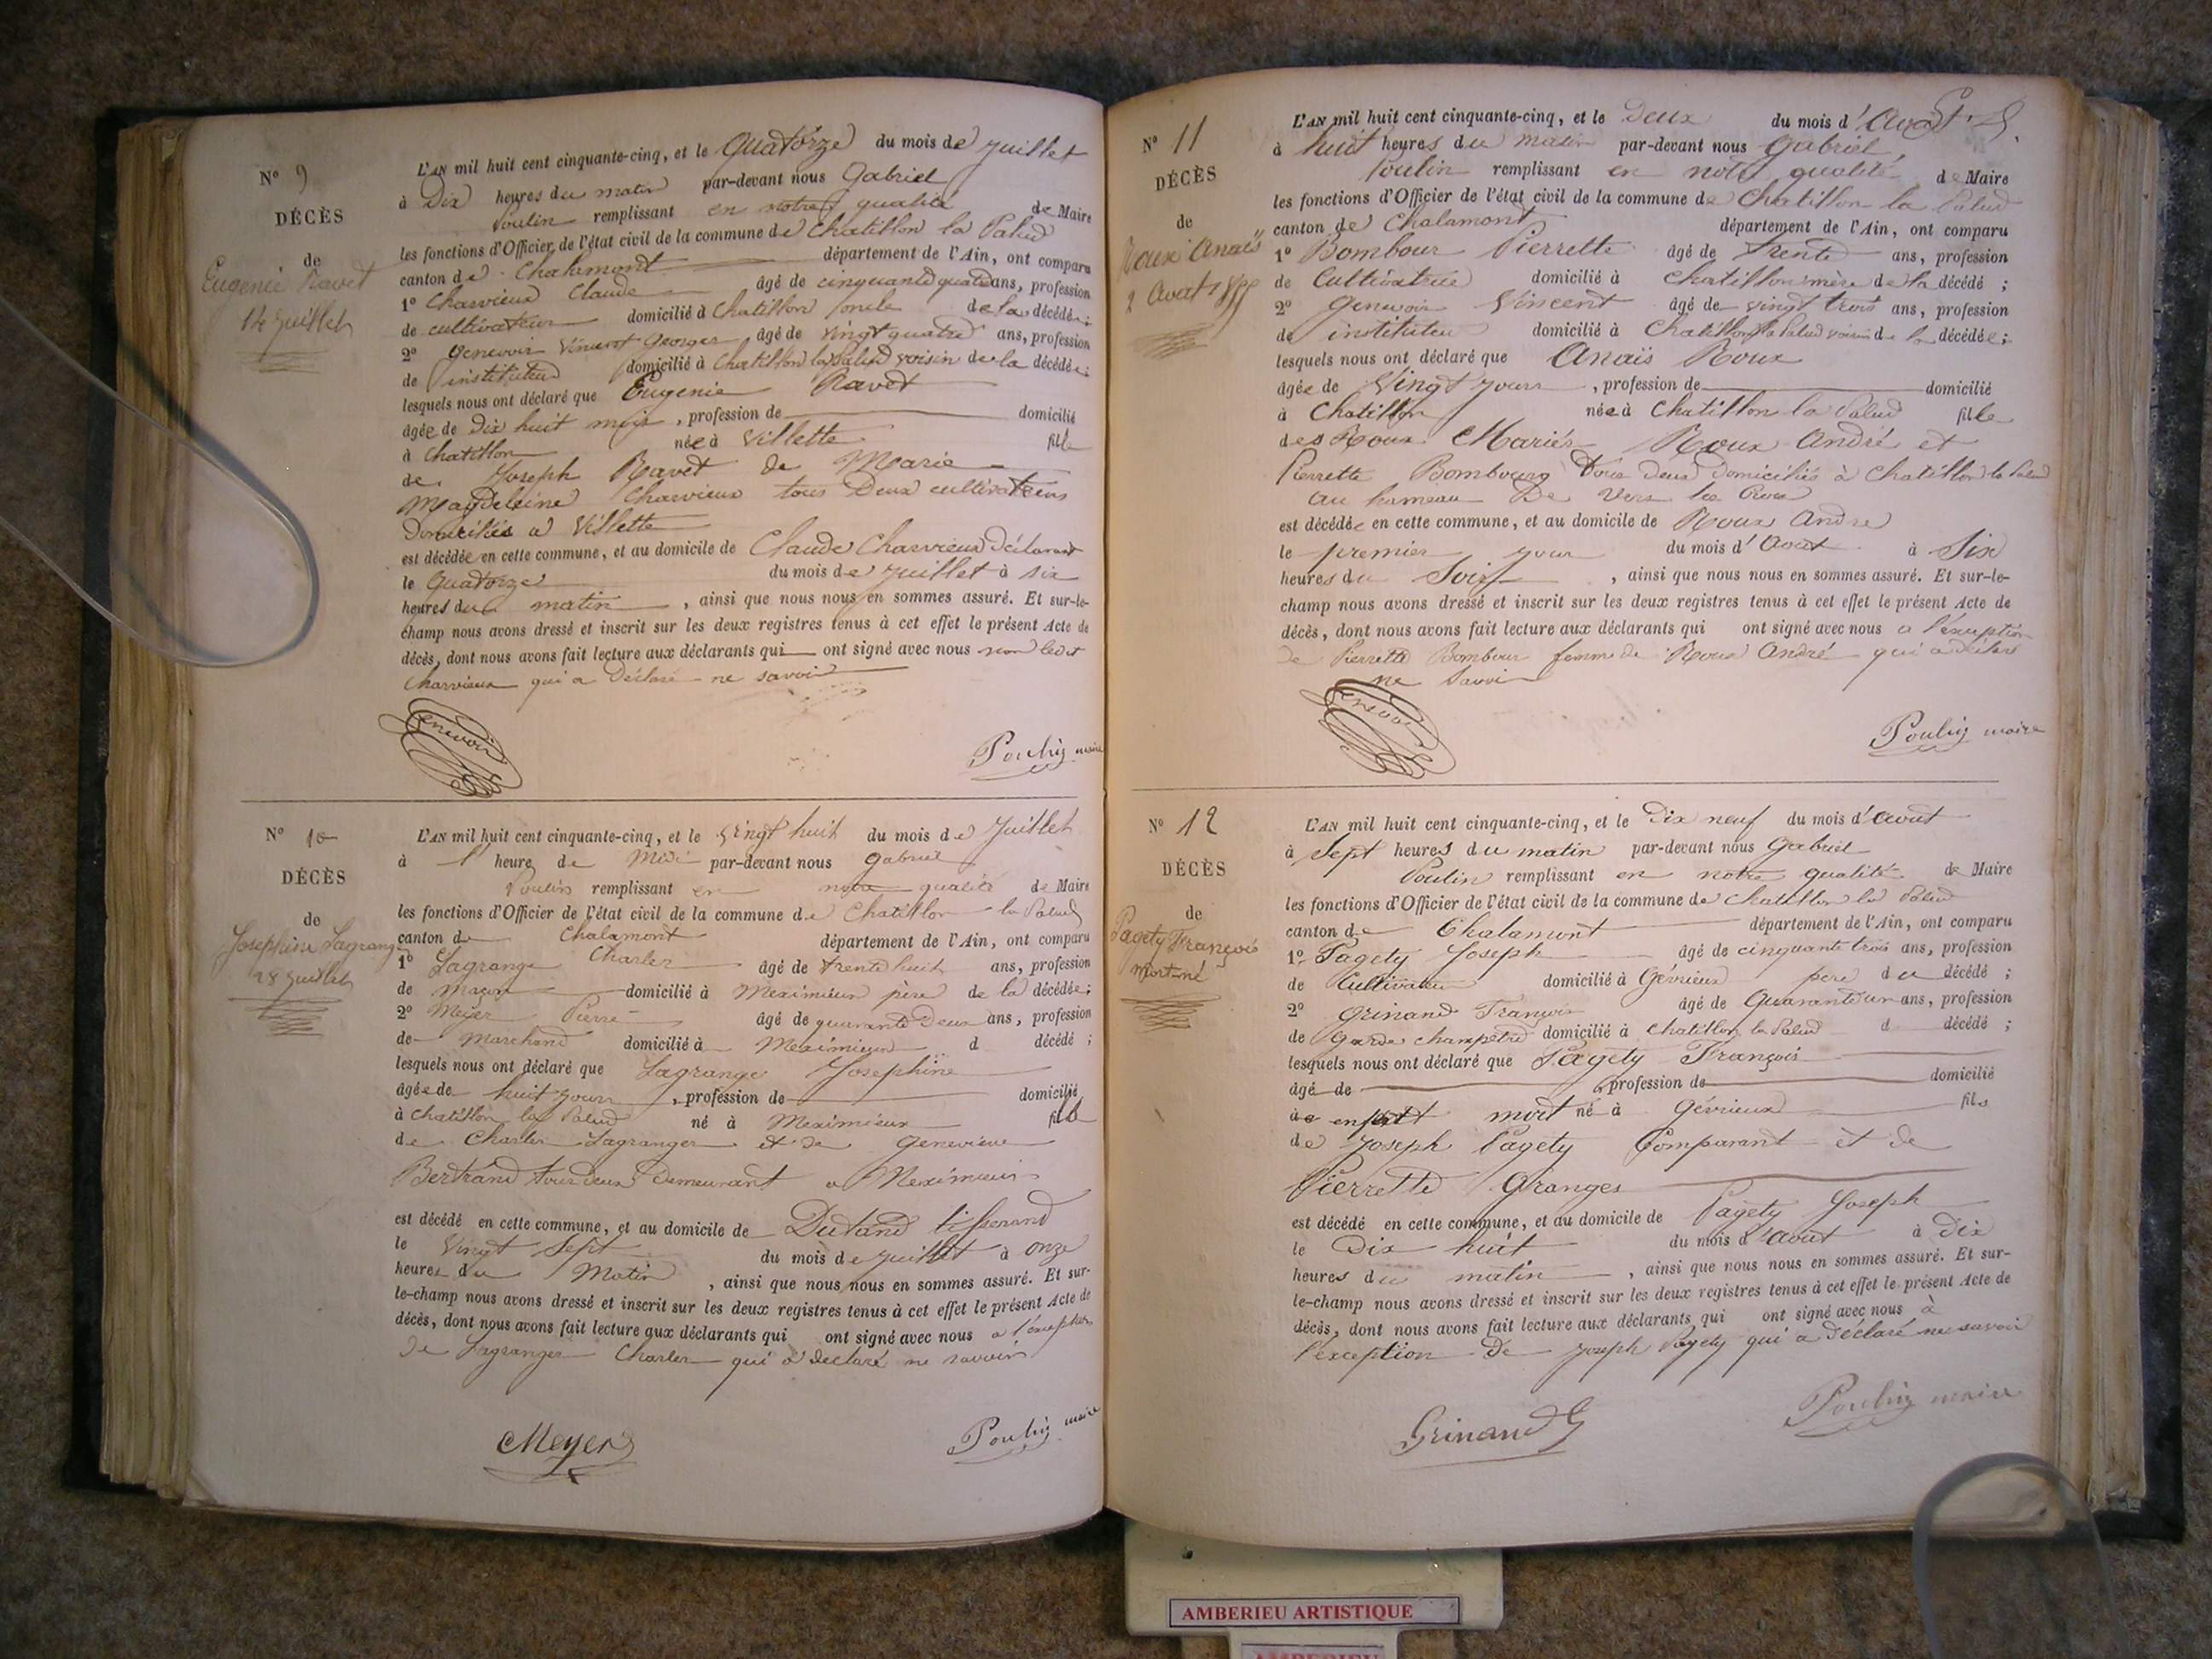 N° 9
DÉCÈS
de
Eugenie Ravet
14 Juillet
L'AN mil huit cent cinquante-cinq, et le Quatorze du mois de Juillet
à Dix heures du matin par-devant nous Gabriel
Poulin remplissant en notre qualité de Maire
les fonctions d'Officier de l'état civil de la commune de Chatillon la Palud
canton de Chalamont département de l'Ain, ont comparu
1° Charvieux Claude âgé de cinquante quatre ans, profession
de cultivateur domicilié à Chatillon oncle de la décédée;
2° Genevoir Vincent Georges âgé de vingt quatre ans, profession
de instituteur domicilié à Chatillon la Palud voisin de la décédée;
lesquels nous ont déclaré que Eugenie Ravet
âgée de Dix huit mois, profession de domicilié
à Chatillon née à Villette fille
de Joseph Ravet de Marie
Magdeleine Charvieux tous Deux cultivateurs
Domiciliés à Villette
est décédée en cette commune, et au domicile de Claude Charvieux Déclarant
le Quatorze du mois de Juillet à six
heures du matin, ainsi que nous nous en sommes assuré. Et sur-le-
champ nous avons dressé et inscrit sur les deux registres tenus à cet effet le présent Acte de
décès, dont nous avons fait lecture aux déclarants qui ont signé avec nous non ledit
Charvieux qui a Déclaré ne savoir
Genevoir
Poulin maire
N° 10
DÉCÈS
de
Josephine Lagrange
28 Juillet
L'AN mil huit cent cinquante-cinq, et le vingt huit du mois de Juillet
à 1 heure de Midi par-devant nous Gabriel
Poulin remplissant en notre qualité de Maire
les fonctions d'Officier de l'état civil de la commune de Chatillon la Palud
canton de Chalamont département de l'Ain, ont comparu
1° Lagrange Charles âgé de trente huit ans, profession
de maçon domicilié à Meximieux père de la décédée;
2° Meyer Pierre âgé de quarante Deux ans, profession
de Marchand domicilié à Meximieux d décédé;
lesquels nous ont déclaré que Lagrange Josephine
âgée de huit jours, profession de domicilié
à Chatillon la Palud né à Meximieux fille
de Charles Lagranger et de Genevieve
Bertrand tous deux Demeurant a Meximieux
est décédé en cette commune, et au domicile de Dutand tisserand
le Vingt Sept du mois de Juillet à onze
heures du Matin, ainsi que nous nous en sommes assuré. Et sur-
le-champ nous avons dressé et inscrit sur les deux registres tenus à cet effet le présent Acte de
décès, dont nous avons fait lecture aux déclarants qui ont signé avec nous a l'exception
De Lagranger Charles qui a declaré ne savoir
Meyer
Poulin maire
N° 11
DÉCÈS
de
Roux Anaïs
2 Aout 1855
L'AN mil huit cent cinquante-cinq, et le Deux du mois d'Août
à huit heures du matin par-devant nous Gabriel
Poulin remplissant en notre qualité de Maire
les fonctions d'Officier de l'état civil de la commune de Chatillon la Palud
canton de Chalamont département de l'Ain, ont comparu
1° Bombour Pierrette âgé de trente ans, profession
de Cultivatrice domicilié à Chatillon mère de la décédé;
2° Genevoir Vincent âgé de vingt trois ans, profession
de instituteur domicilié à Chatillon la Palud voisin de la décédée;
lesquels nous ont déclaré que Anaïs Roux
âgée de Vingt jours, profession de domicilié
à Chatillon née à Chatillon la Palud fille
des Roux Mariés Roux André et
Pierrette Bombourg tous Deux Domiciliés à Chatillon la Palud
au hameau De Vers le Rux
est décédée en cette commune, et au domicile de Roux André
le premier jour du mois d'Aout à Six
heures du Soir, ainsi que nous nous en sommes assuré. Et sur-le-
champ nous avons dressé et inscrit sur les deux registres tenus à cet effet le présent Acte de
décès, dont nous avons fait lecture aux déclarants qui ont signé avec nous a l'exception
de Pierrette Bombour femme de Roux André qui a déclaré
ne Savoir
Genevoir
Poulin maire
N° 12
DÉCÈS
de
Pagety François
mort-né
L'AN mil huit cent cinquante-cinq, et le Dix neuf du mois d'Aout
à Sept heures du matin par-devant nous Gabriel
Poulin remplissant en notre qualité de Maire
les fonctions d'Officier de l'état civil de la commune de Chatillon la Palud
canton de Chalamont département de l'Ain, ont comparu
1° Pagety Joseph âgé de cinquante trois ans, profession
de Cultivateur domicilié à Gévrieux père du décédé;
2° Grinand François âgé de Quarante un ans, profession
de Garde champêtre domicilié à Chatillon la Palud d décédé;
lesquels nous ont déclaré que Pagety François
âgé de profession de domicilié
à enfant mort né à Gévrieux fils
de Joseph Pagety Comparant et de
Pierrette Granges
est décédé en cette commune, et au domicile de Pagety Joseph
le Dix huit du mois d'aout à Dix
heures du matin, ainsi que nous nous en sommes assuré. Et sur-
le-champ nous avons dressé et inscrit sur les deux registres tenus à cet effet le présent Acte de
décès, dont nous avons fait lecture aux déclarants qui ont signé avec nous à
l'exception De Joseph Pagety qui a déclaré ne savoir
Grinand
Poulin maire
AMBERIEU ARTISTIQUE
AMBERIEU